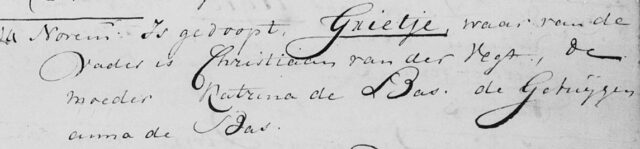 24 Novem: Is gedoopt, Grietje, waar van de
Vader is Christiaan van der Vegt, de
moeder Katrina de Bas. de Getuijgen
anna de Bas.